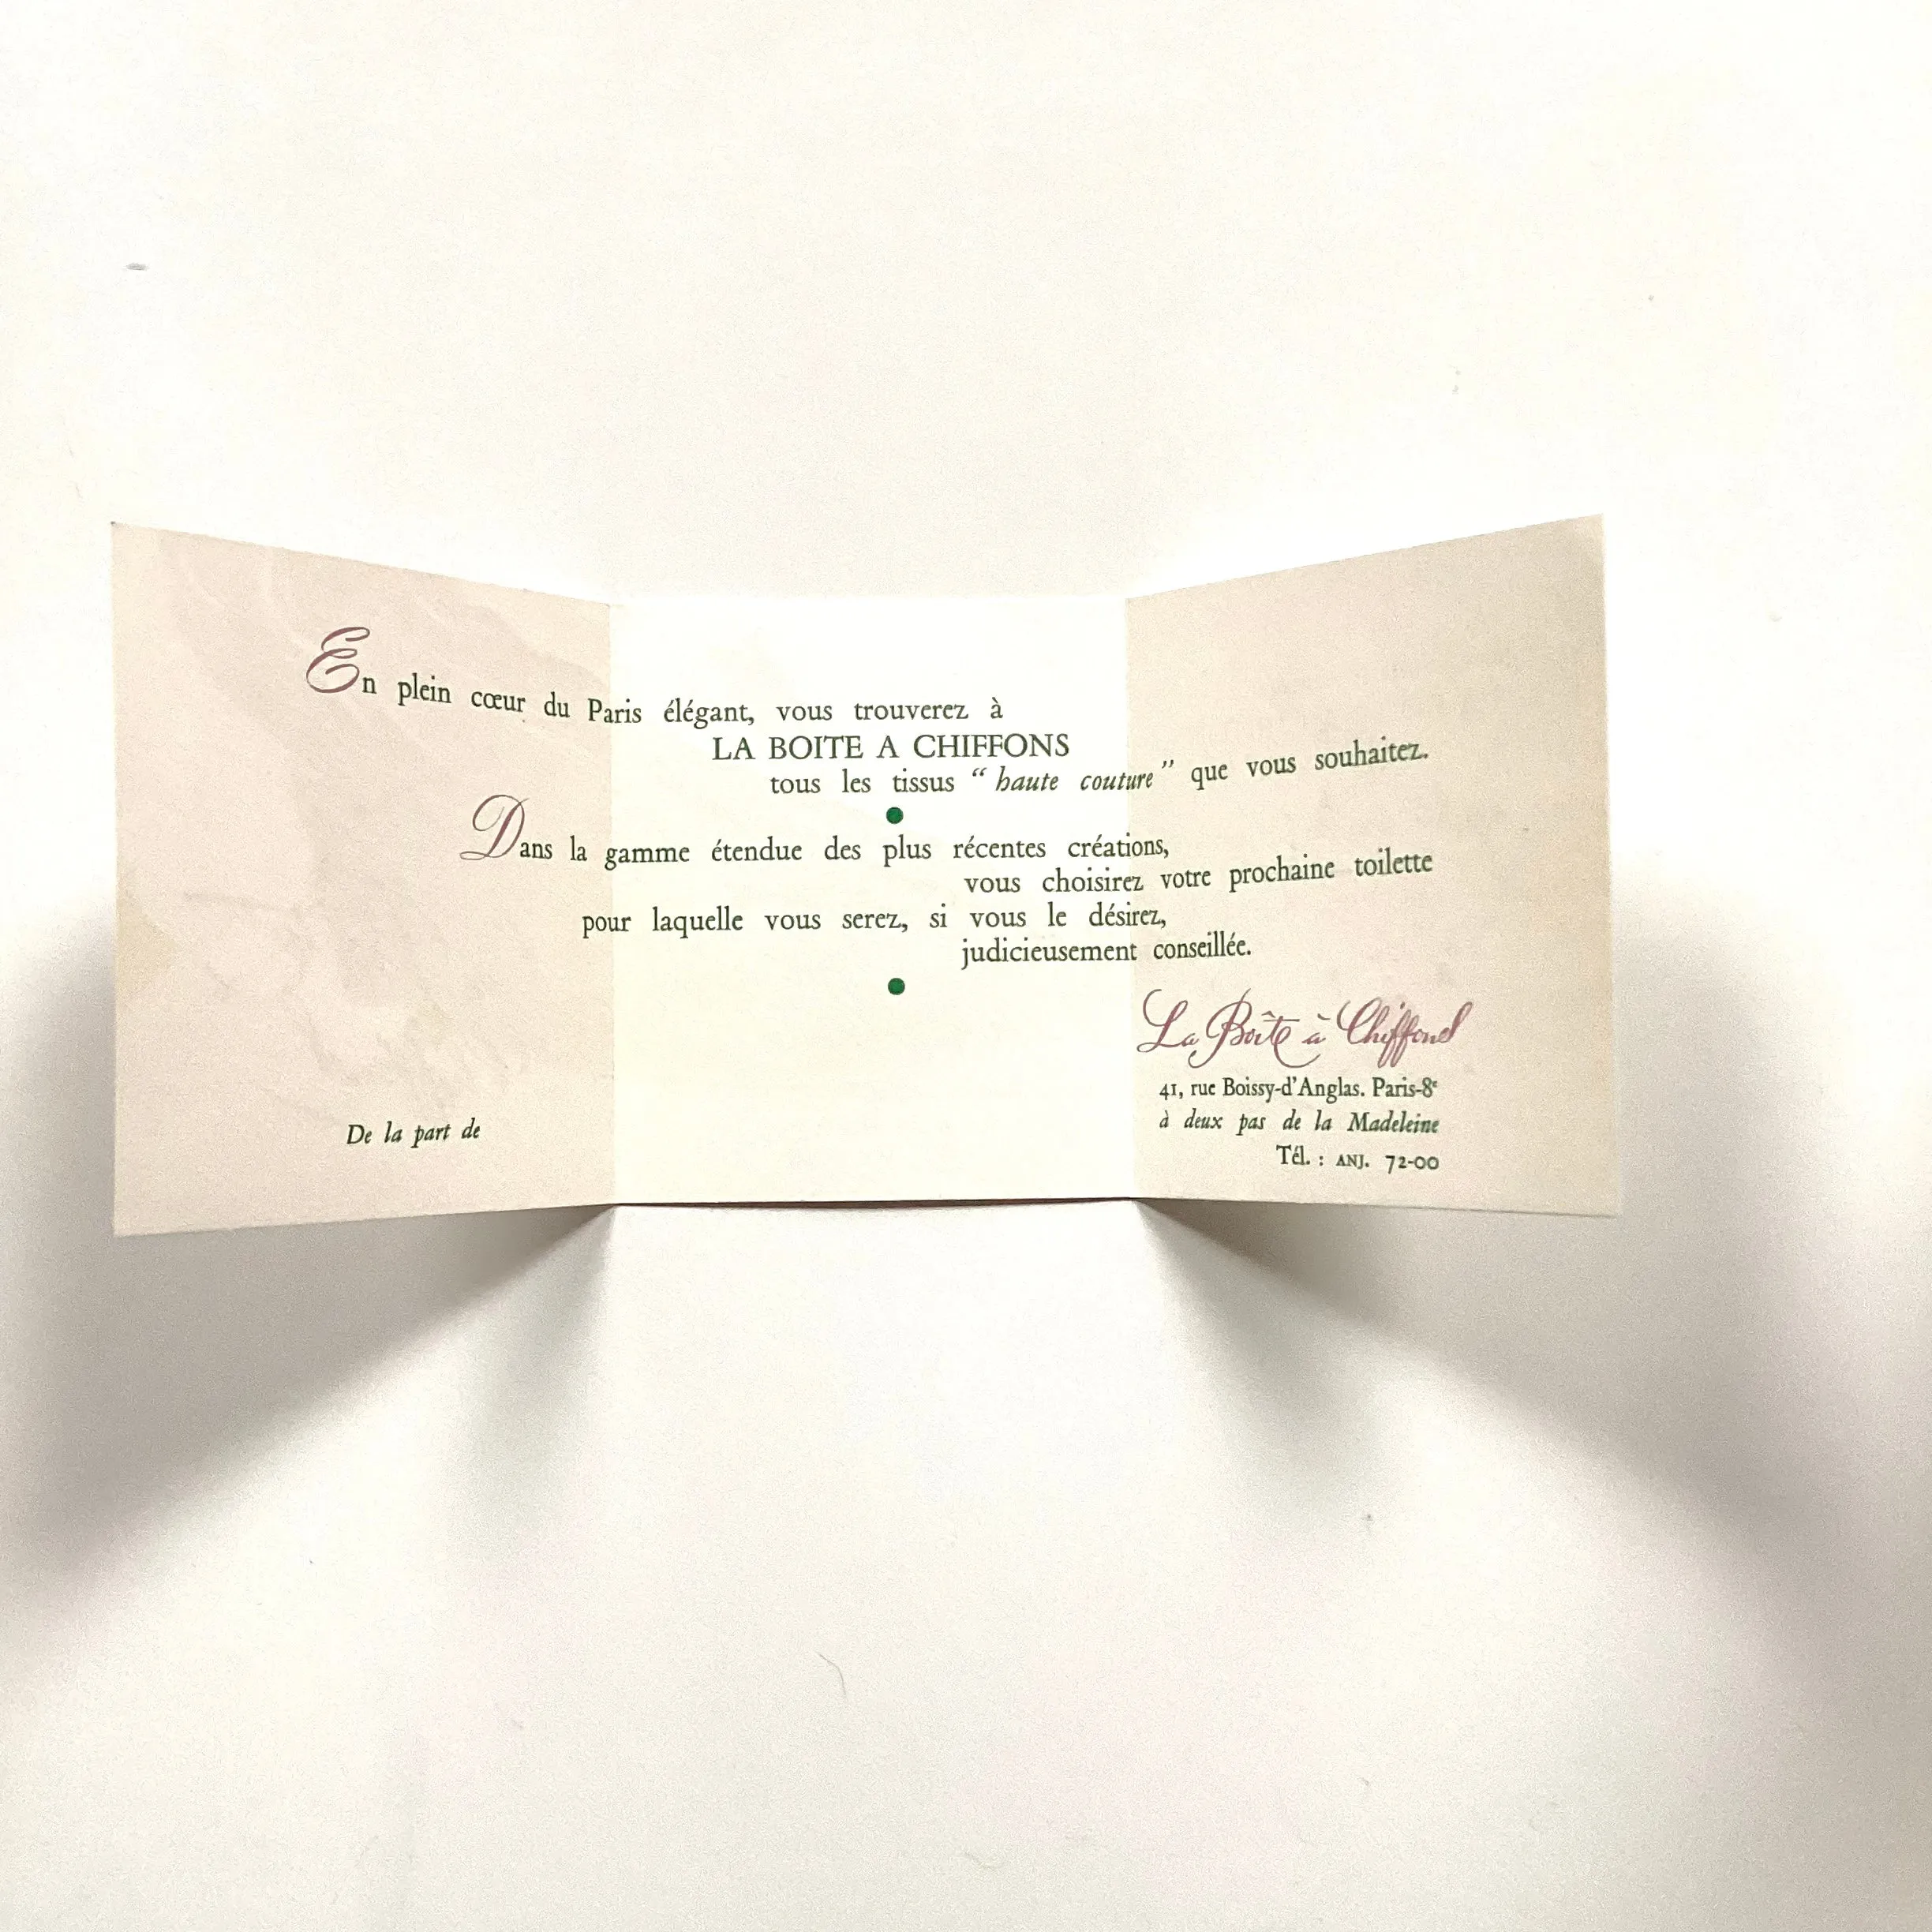 En plein cœur du Paris élégant, vous trouverez à
LA BOITE A CHIFFONS
tous les tissus “ haute couture ” que vous souhaitez.
Dans la gamme étendue des plus récentes créations,
vous choisirez votre prochaine toilette
pour laquelle vous serez, si vous le désirez,
judicieusement conseillée.
La Boîte à Chiffons
41, rue Boissy-d'Anglas. Paris-8e
à deux pas de la Madeleine
Tél. : ANJ. 72-00
De la part de